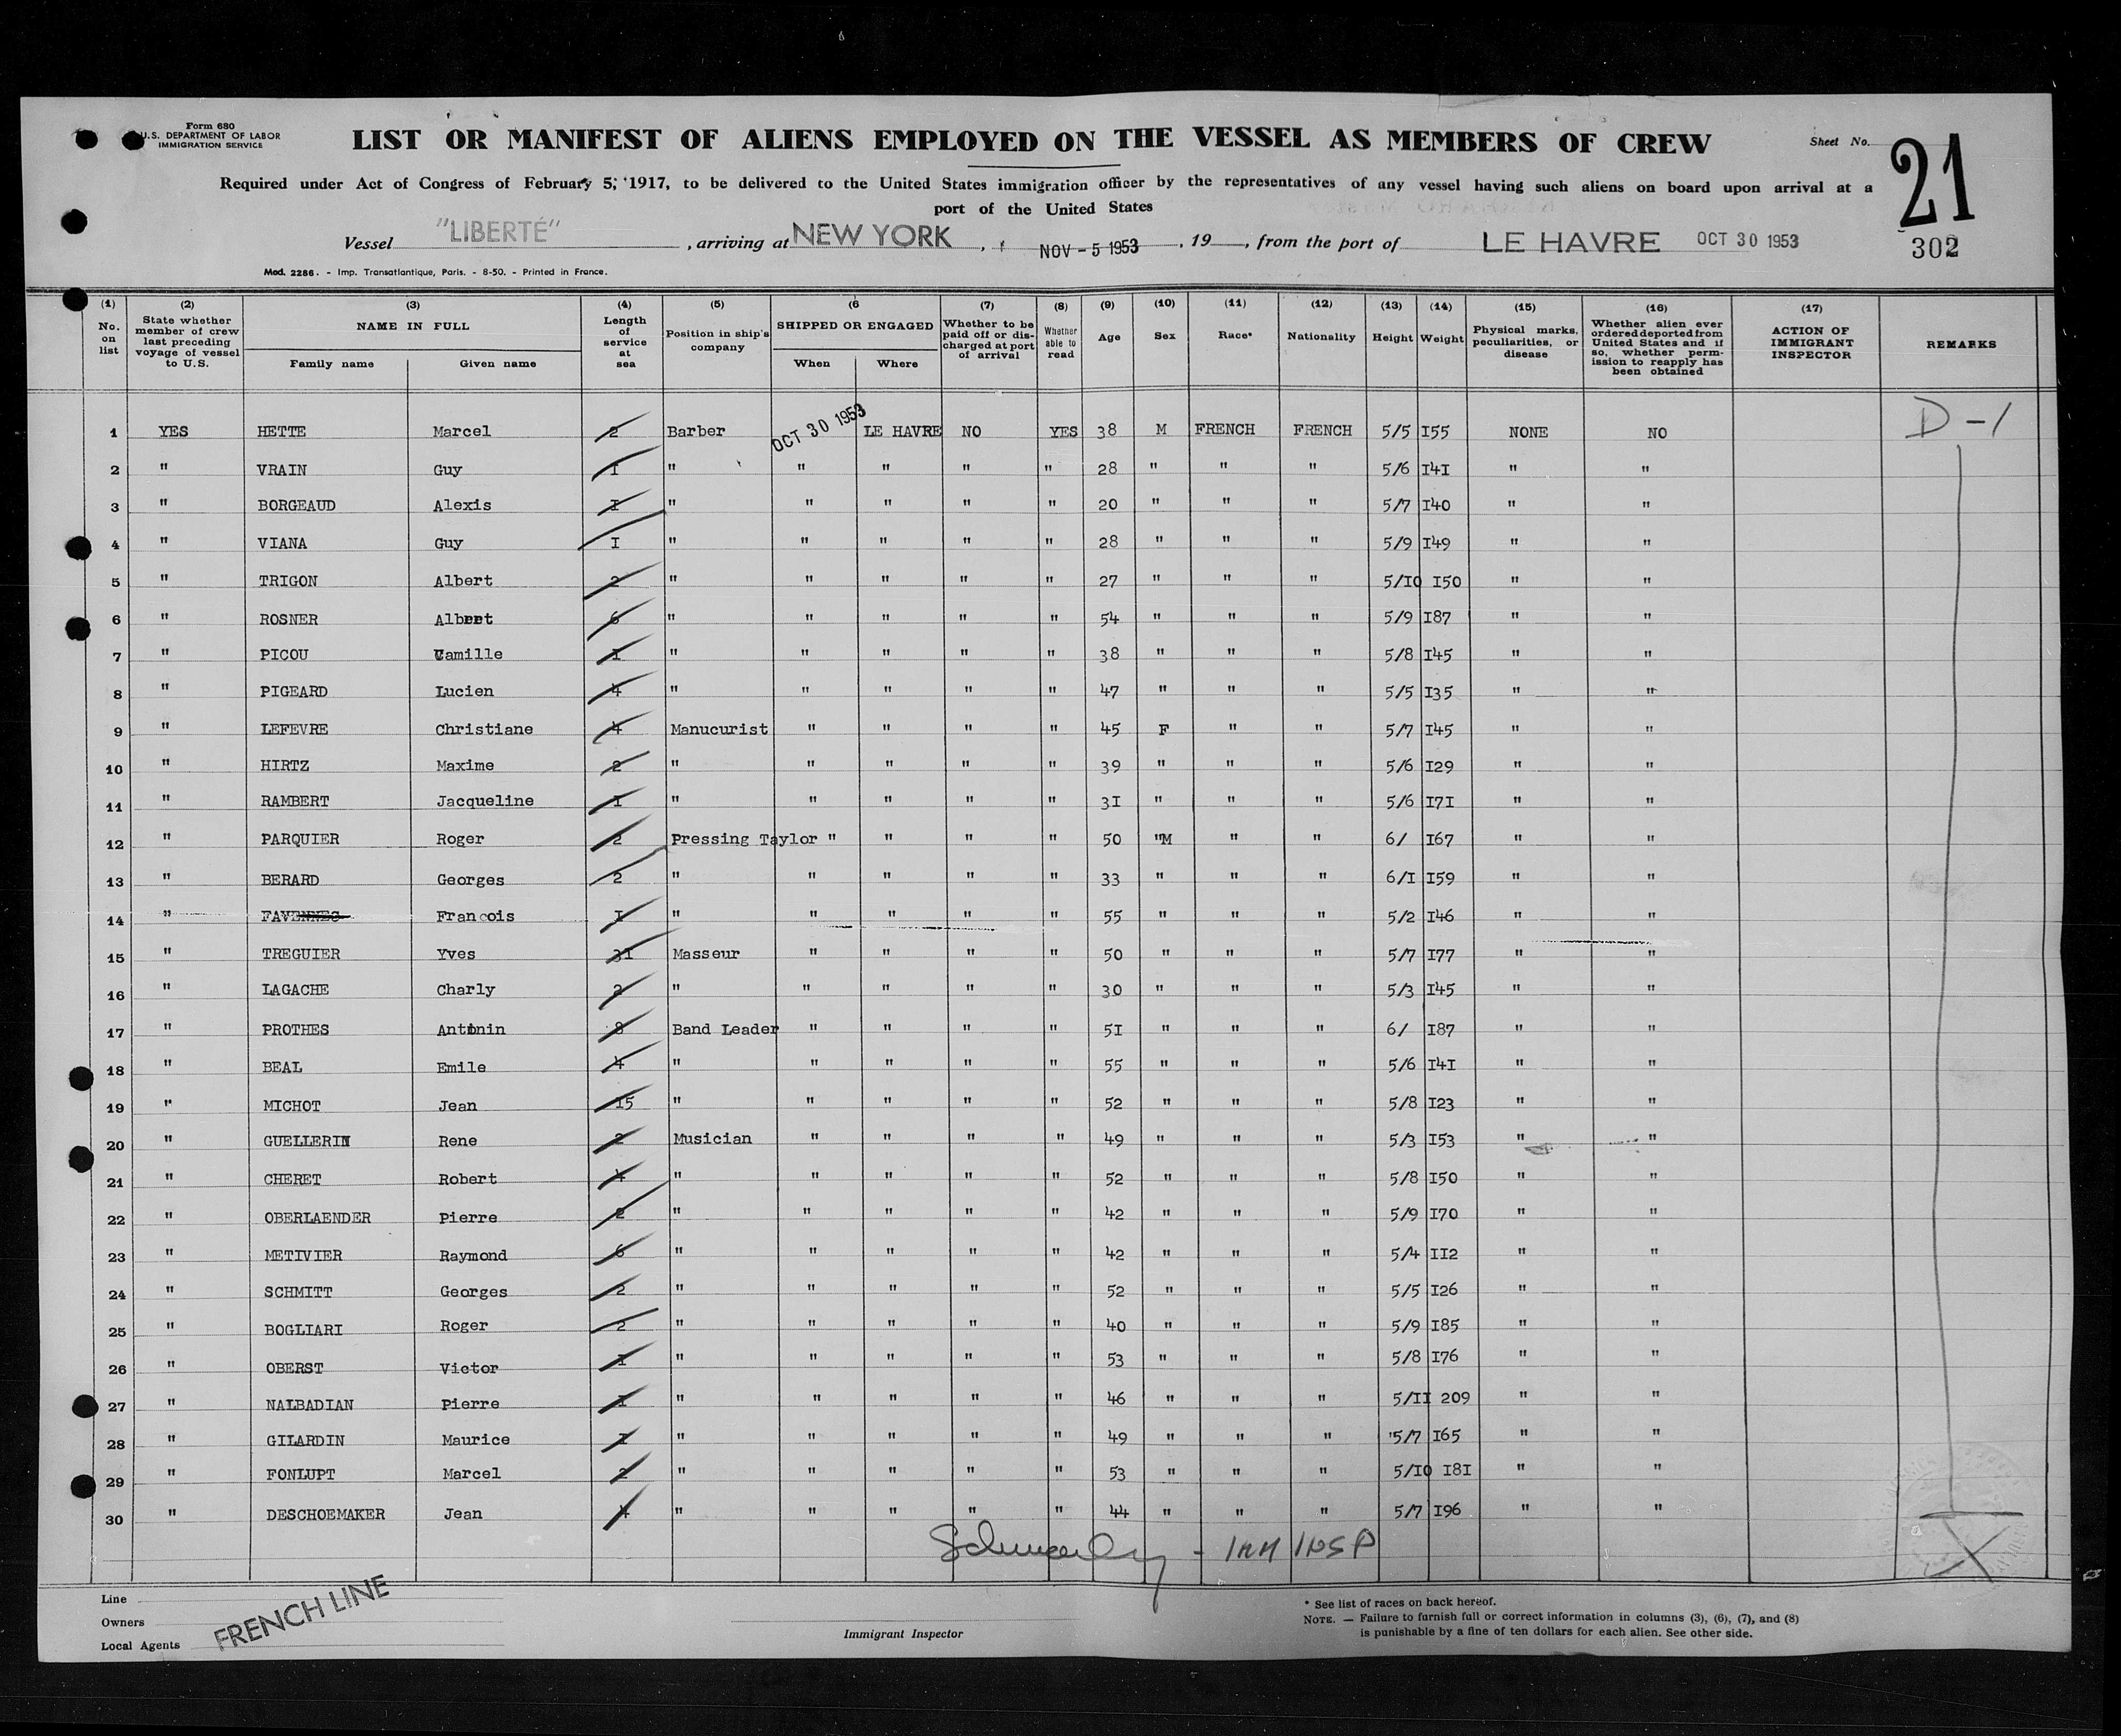 Form 680
U.S. DEPARTMENT OF LABOR
IMMIGRATION SERVICE
LIST OR MANIFEST OF ALIENS EMPLOYED ON THE VESSEL AS MEMBERS OF CREW
Sheet No. 21
302
Required under Act of Congress of February 5, 1917, to be delivered to the United States immigration officer by the representatives of any vessel having such aliens on board upon arrival at a
port of the United States
Vessel "LIBERTÉ", arriving at NEW YORK, NOV - 5 1953, 19, from the port of LE HAVRE OCT 30 1953
Mod. 2286. - Imp. Transatlantique, Paris. - 8-50. - Printed in France.
(1) No. on list
(2) State whether member of crew last preceding voyage of vessel to U.S.
(3) NAME IN FULL Family name Given name
(4) Length of service at sea
(5) Position in ship's company
(6 SHIPPED OR ENGAGED When Where
(7) Whether to be paid off or discharged at port of arrival
(8) Whether able to read
(9) Age
(10) Sex
(11) Race*
(12) Nationality
(13) Height
(14) Weight
(15) Physical marks, peculiarities, or disease
(16) Whether alien ever ordered deported from United States and if so, whether permission to reapply has been obtained
(17) ACTION OF IMMIGRANT INSPECTOR
REMARKS
1 YES HETTE Marcel 2 Barber OCT 30 1953 LE HAVRE NO YES 38 M FRENCH FRENCH 5/5 I55 NONE NO D-1
2 " VRAIN Guy I " " " " " 28 " " " 5/6 I4I " "
3 " BORGEAUD Alexis I " " " " " 20 " " " 5/7 I40 " "
4 " VIANA Guy I " " " " " 28 " " " 5/9 I49 " "
5 " TRIGON Albert 2 " " " " " 27 " " " 5/I0 I50 " "
6 " ROSNER Albert 6 " " " " " 54 " " " 5/9 I87 " "
7 " PICOU Camille I " " " " " 38 " " " 5/8 I45 " "
8 " PIGEARD Lucien 4 " " " " " 47 " " " 5/5 I35 " "
9 " LEFEVRE Christiane 4 Manucurist " " " " 45 F " " 5/7 I45 " "
10 " HIRTZ Maxime 2 " " " " " 39 " " " 5/6 I29 " "
11 " RAMBERT Jacqueline I " " " " " 3I " " " 5/6 I7I " "
12 " PARQUIER Roger 2 Pressing Taylor " " " " 50 "M " " 6/ I67 " "
13 " BERARD Georges 2 " " " " " 33 " " " 6/I I59 " "
14 " FAVENNEC Francois I " " " " " 55 " " " 5/2 I46 " "
15 " TREGUIER Yves 3I Masseur " " " " 50 " " " 5/7 I77 " "
16 " LAGACHE Charly 2 " " " " " 30 " " " 5/3 I45 " "
17 " PROTHES Antonin 8 Band Leader " " " " 5I " " " 6/ I87 " "
18 " BEAL Emile 4 " " " " " 55 " " " 5/6 I4I " "
19 " MICHOT Jean I5 " " " " " 52 " " " 5/8 I23 " "
20 " GUELLERIN Rene 2 Musician " " " " 49 " " " 5/3 I53 " "
21 " CHERET Robert 4 " " " " " 52 " " " 5/8 I50 " "
22 " OBERLAENDER Pierre 2 " " " " " 42 " " " 5/9 I70 " "
23 " METIVIER Raymond 6 " " " " " 42 " " " 5/4 II2 " "
24 " SCHMITT Georges 2 " " " " " 52 " " " 5/5 I26 " "
25 " BOGLIARI Roger 2 " " " " " 40 " " " 5/9 I85 " "
26 " OBERST Victor I " " " " " 53 " " " 5/8 I76 " "
27 " NALBADIAN Pierre I " " " " " 46 " " " 5/II 209 " "
28 " GILARDIN Maurice I " " " " " 49 " " " '5/7 I65 " "
29 " FONLUPT Marcel 2 " " " " " 53 " " " 5/I0 I8I " "
30 " DESCHOEMAKER Jean 4 " " " " " 44 " " " 5/7 I96 " "
- IMM INSP
Line
Owners
Local Agents
FRENCH LINE
Immigrant Inspector
* See list of races on back hereof.
NOTE. — Failure to furnish full or correct information in columns (3), (6), (7), and (8)
is punishable by a fine of ten dollars for each alien. See other side.